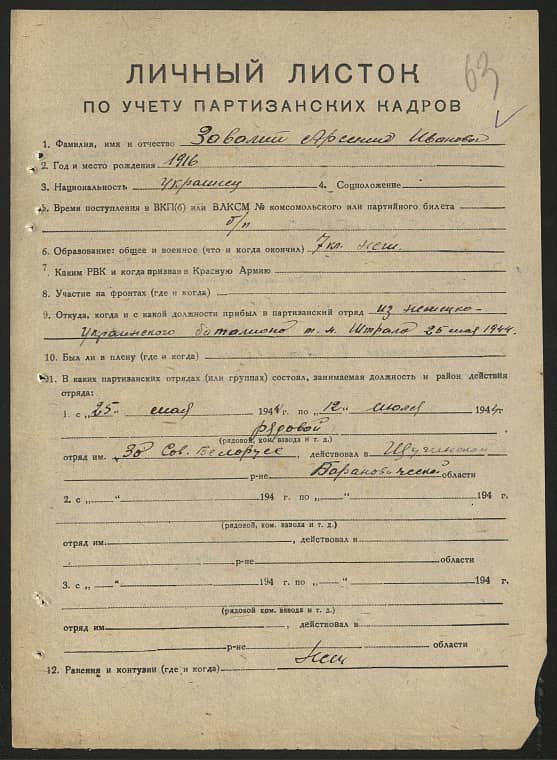 63
ЛИЧНЫЙ ЛИСТОК
ПО УЧЕТУ ПАРТИЗАНСКИХ КАДРОВ
1. Фамилия, имя и отчество Завалий Арсений Иванович
2. Год и место рождения 1916
3. Национальность украинец 4. Соцположение
5. Время поступления в ВКП(б) или ВЛКСМ № комсомольского или партийного билета
б/п
6. Образование: общее и военное (что и когда окончил) 7 кл. нет.
7. Каким РВК и когда призван в Красную Армию
8. Участие на фронтах (где и когда)
9. Откуда, когда и с какой должности прибыл в партизанский отряд из немецко-
украинского баталиона м. 25 мая 1944г.
10. Был ли в плену (где и когда)
11. В каких партизанских отрядах (или группах) состоял, занимаемая должность и район действия
отряда:
1. с „25" мая 1944 г. по „12" июля 1944 г.
рядовой
(рядовой, ком. взвода и т. д.)
отряд им. Сов. Белорусс, действовал в Щучинском
р-не Барановической области
2. с „ " 194 г. по „ " 194 г.
(рядовой, ком. взвода и т. д.)
отряд им. , действовал в
р-не области
3. с „ " 194 г. по „ " 194 г.
(рядовой ком. взвода и т. д.)
отряд им , действовал в
р-не области
12. Ранения и контузии (где и когда) нет